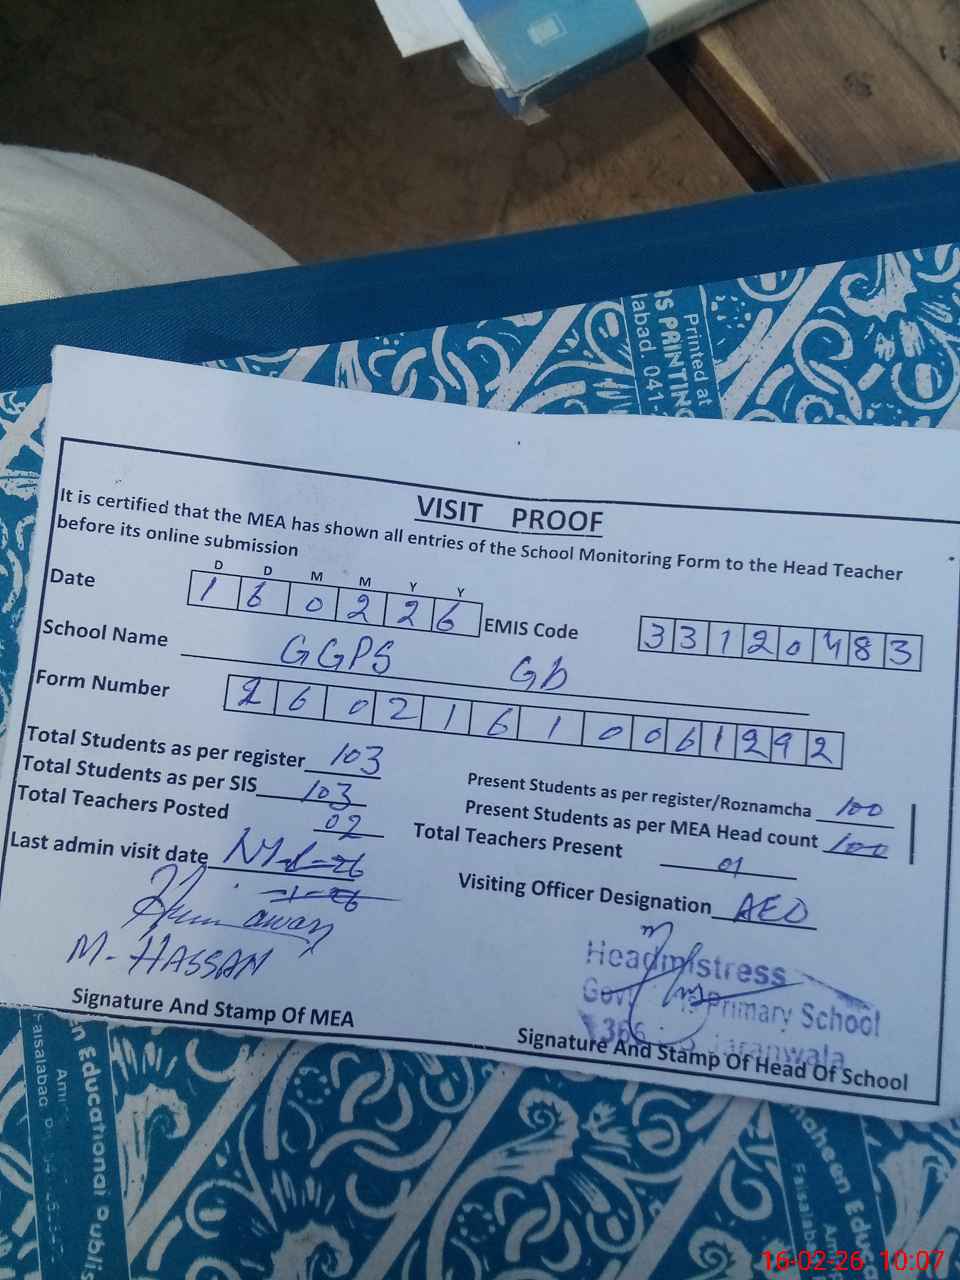 Printed at
IS PRINTIN
labad. 041-
VISIT PROOF
It is certified that the MEA has shown all entries of the School Monitoring Form to the Head Teacher
before its online submission
D D M M Y Y
Date 1 6 0 2 2 6 EMIS Code 3 3 1 2 0 4 8 3
School Name GGPS Gb
Form Number 2 6 0 2 1 6 1 0 0 6 1 2 9 2
Total Students as per register 103 Present Students as per register/Roznamcha 100
Total Students as per SIS 103 Present Students as per MEA Head count 100
Total Teachers Posted 02 Total Teachers Present 01
Last admin visit date
Visiting Officer Designation AEO
M. HASSAN
Headmistress
Govt Primary School
366 Jaranwala
Signature And Stamp Of MEA
Signature And Stamp Of Head Of School
Faisalabad
en Educational Publis
moheen Educa
Faisalaba
16-02-26 10:07